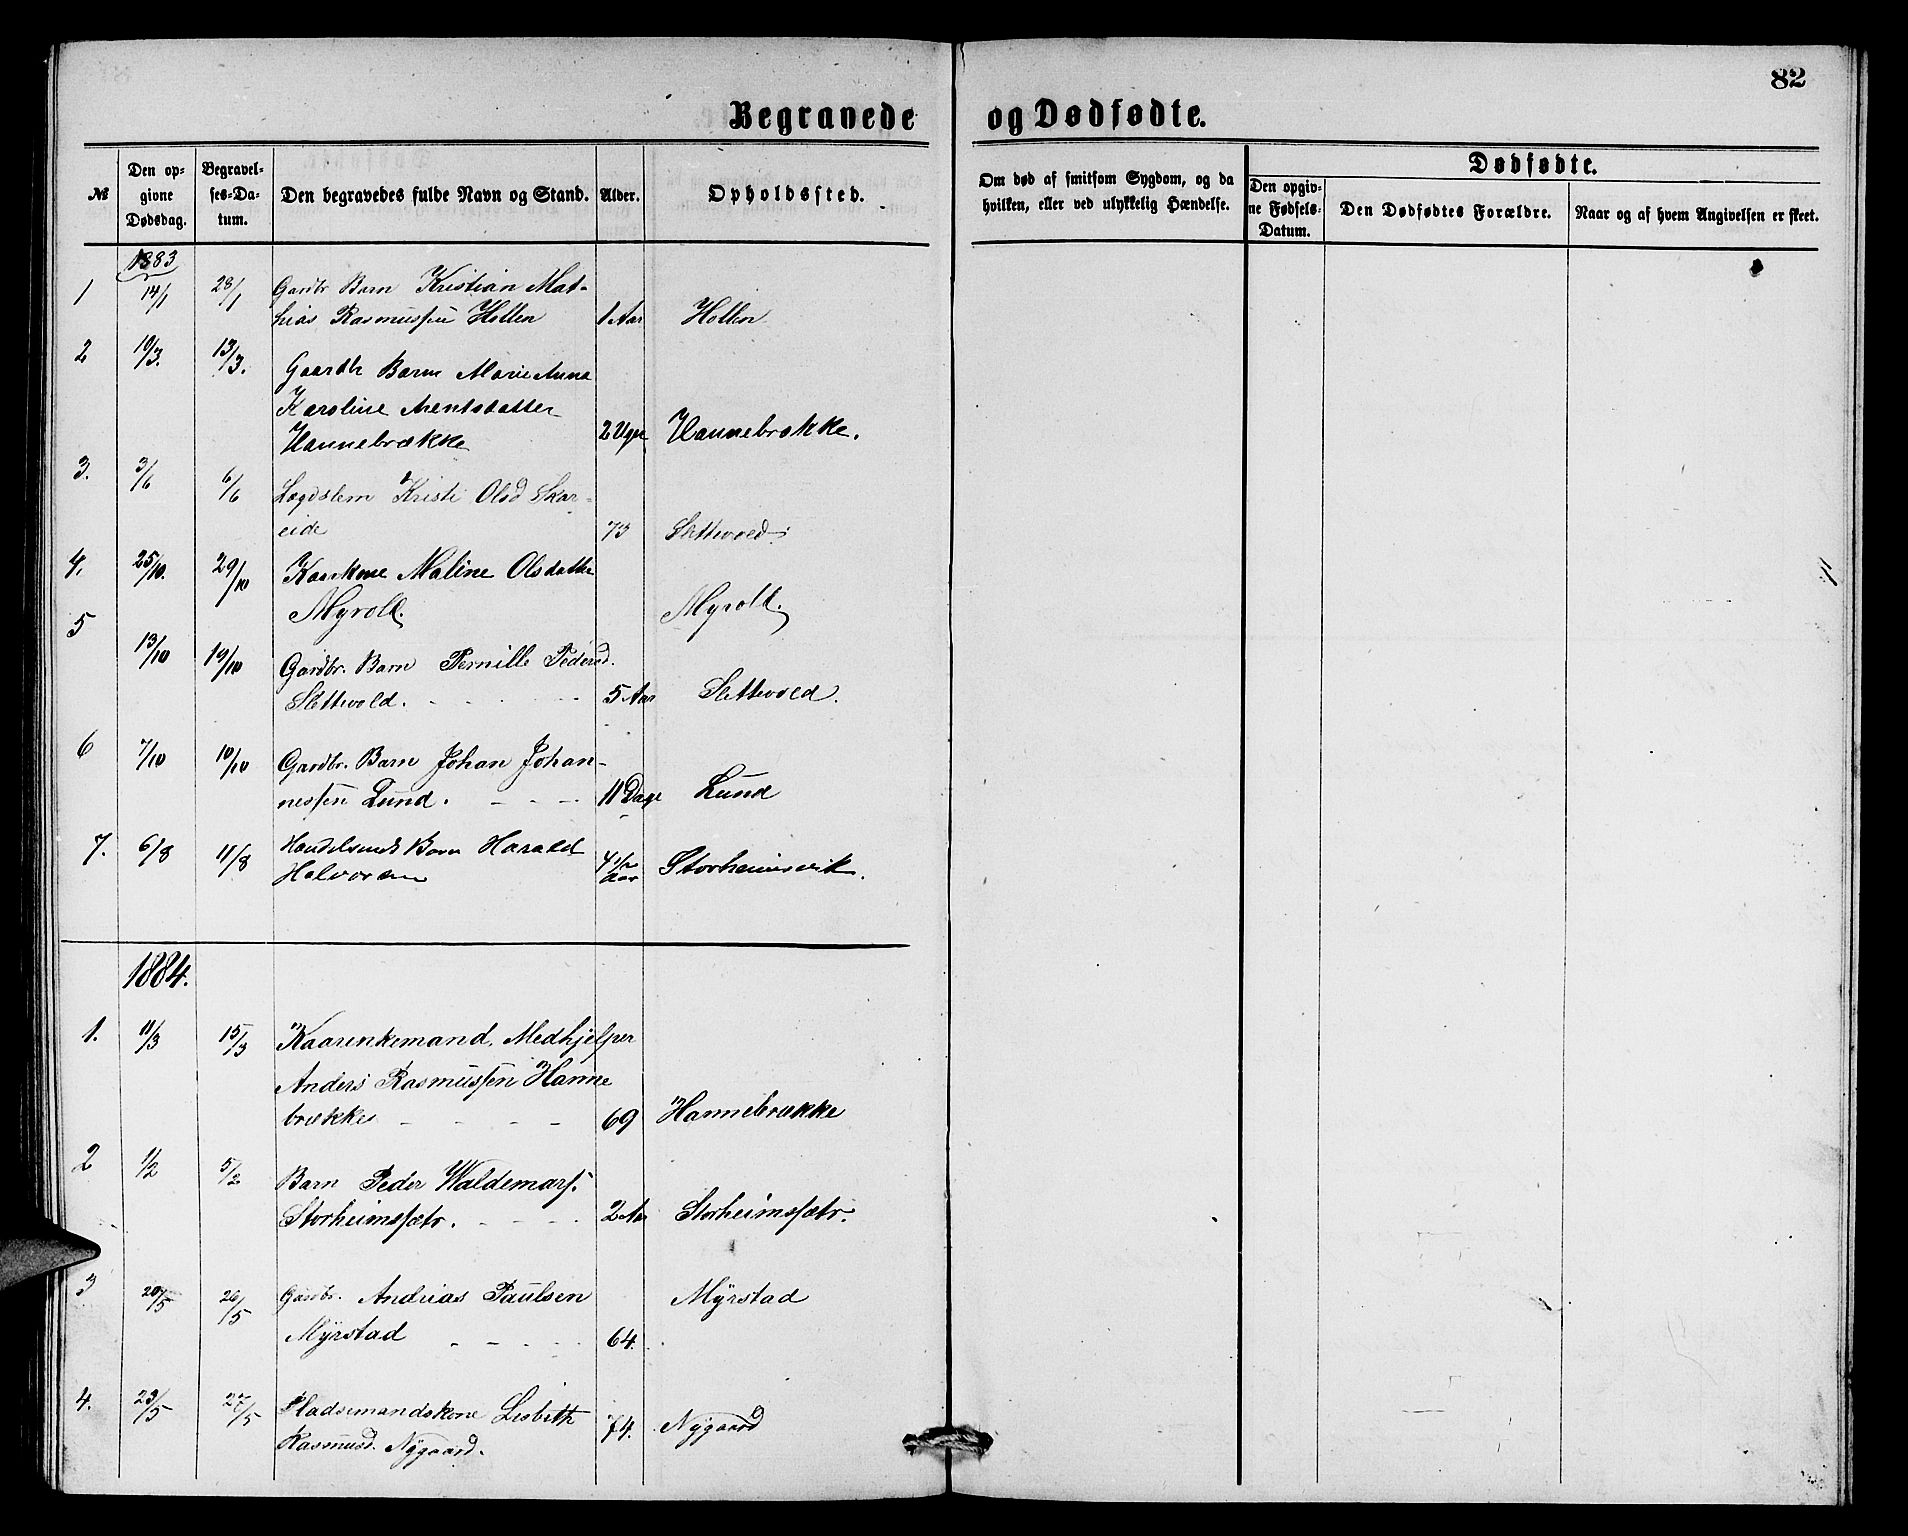 82
Begravede og Dødfødte.
№
Den opgivne Dødsdag.
Begravelses-Datum.
Den begravedes fulde Navn og Stand.
Alder.
Opholdssted.
Om død af smitsom Sygdom, og da hvilken, eller ved ulykkelig Hændelse.
Dødfødte.
Den opgivne Fødsels-Datum.
Den Dødfødtes Forældre.
Naar og af hvem Angivelsen er skeet.
1883
1 14/1 28/1 Gardbr Barn Kristian Mat-
hias Rasmussen Hollen 1 Aar Hollen
2 10/3. 13/3. Gaardb Barn Marie Anna
Karoline Arentsdatter
Hannebrække 2 Uger Hannebrække.
3. 3/6 6/6 Lægdslem Kristi Olsd Skar-
eide 73 Slettevold
4. 25/10. 29/10 Kaarkone Maline Olsdatter
Myrold. Myrold.
5 13/10 19/10 Gardbr. Barn Pernille Pedersd.
Slettevold. 5 Aar Slettevold.
6 7/10 10/10 Gardbr. Barn Johan Johan-
nessen Lund. 11 Dage Lund
7. 6/8 11/8 Handelsmds Barn Harald
Halvorsen 4 1/2 Aar Storheimsvik.
1884.
1. 11/3 15/3 Kaarenkemand, Medhjelper
Anders Rasmussen Hanne
brække 69 Hannebrække
2 1/2 5/2 Barn Peder Waldemars.
Storheimssætr. 2 Aar Storheimssætr.
3 20/5 26/5 Gardbr. Andreas Paulsen Myrstad
Myrstad 64.
4. 23/5 27/5 Pladsemandskone Lisbeth
Rasmusd. Nygaard. 74. Nygaard